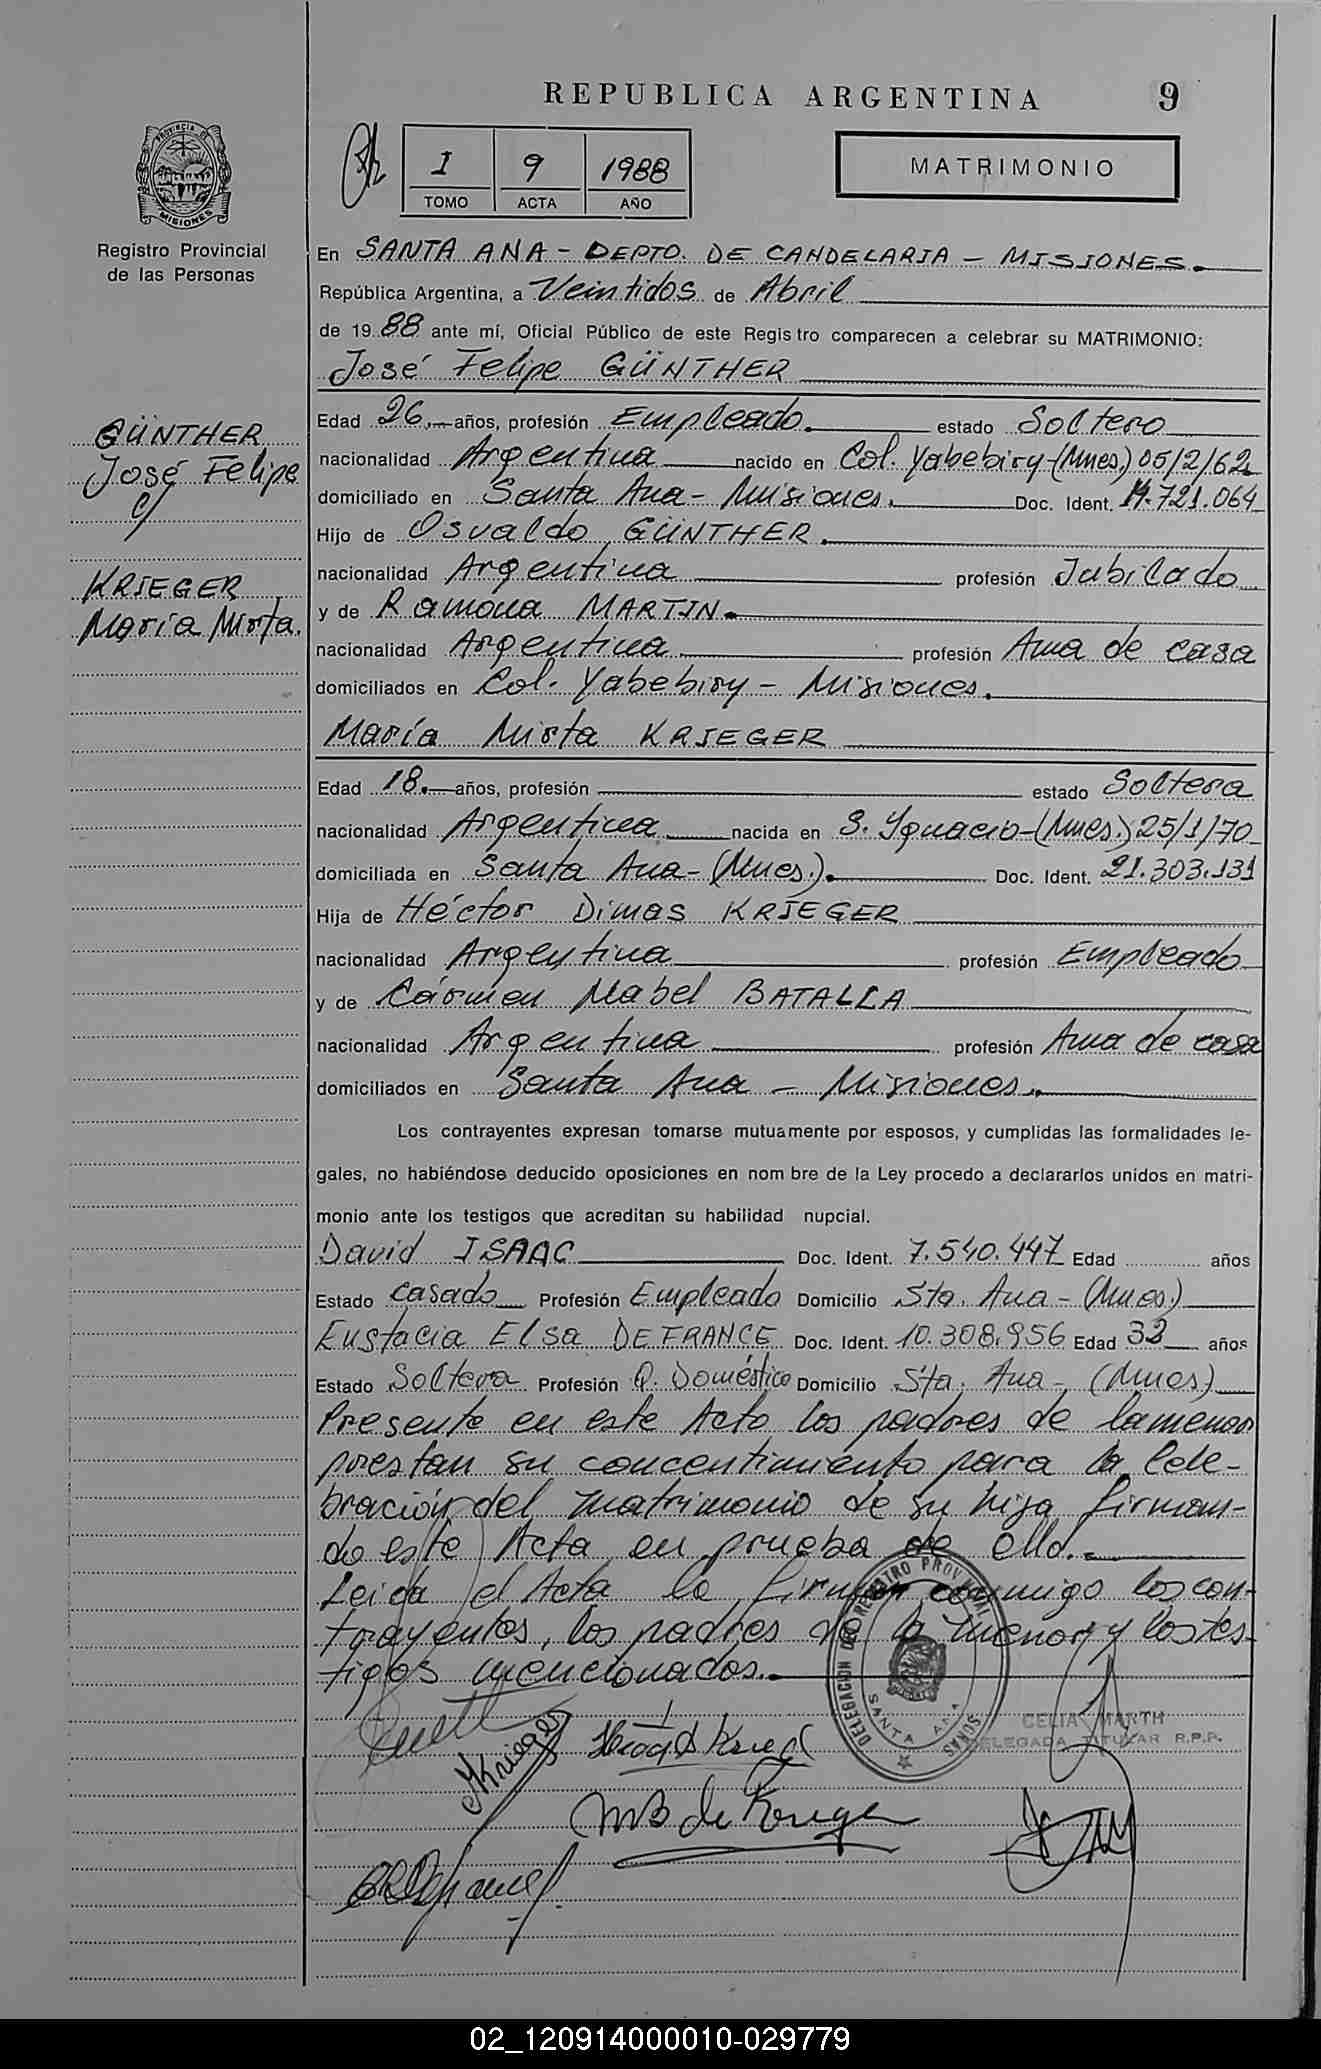 REPUBLICA ARGENTINA 9
I 9 1988
TOMO ACTA AÑO
MATRIMONIO
PROVINCIA DE
MISIONES
Registro Provincial
de las Personas
GÜNTHER
José Felipe
c/
KRIEGER
María Mirta.
En SANTA ANA - DEPTO. DE CANDELARIA - MISIONES.
República Argentina, a Veintidos de Abril
de 1988 ante mí, Oficial Público de este Registro comparecen a celebrar su MATRIMONIO:
José Felipe GÜNTHER
Edad 26.- años, profesión Empleado. estado Soltero
nacionalidad Argentina nacido en Col. Yabebiry-(Mnes.) 05/2/62
domiciliado en Santa Ana - Misiones. Doc. Ident. 14.721.064
Hijo de Osvaldo GÜNTHER.
nacionalidad Argentina profesión Jubilado
y de Ramona MARTIN.
nacionalidad Argentina profesión Ama de casa
domiciliados en Col. Yabebiry - Misiones.
María Mirta KRIEGER
Edad 18.- años, profesión estado Soltera
nacionalidad Argentina nacida en S. Ygnacio-(Mnes.) 25/1/70
domiciliada en Santa Ana-(Mnes.). Doc. Ident. 21.303.131
Hija de Héctor Dimas KRIEGER
nacionalidad Argentina profesión Empleado
y de Cármen Mabel BATALLA
nacionalidad Argentina profesión Ama de casa
domiciliados en Santa Ana - Misiones.
Los contrayentes expresan tomarse mutuamente por esposos, y cumplidas las formalidades le-
gales, no habiéndose deducido oposiciones en nom bre de la Ley procedo a declararlos unidos en matri-
monio ante los testigos que acreditan su habilidad nupcial.
David ISAAC Doc. Ident. 7.540.447 Edad años
Estado casado Profesión Empleado Domicilio Sta. Ana - (Mnes.)
Eustacia Elsa DEFRANCE Doc. Ident. 10.308.956 Edad 32 años
Estado Soltera Profesión Q. Doméstico Domicilio Sta. Ana - (Mnes)
Presente en este Acto los padres de la menor
prestan su concentimiento para la Cele-
bración del matrimonio de su hija firman-
do este Acta en prueba de ello.-
Leida el Acta la firman conmigo los con-
trayentes, los padres de la menor y los tes-
tigos mencionados.
DELEGACION DEL REGISTRO PROVINCIAL
SANTA ANA
CELIA MARTH
DELEGADA TITULAR R.P.P.
MKrieger
MB de Krieger
02_120914000010-029779